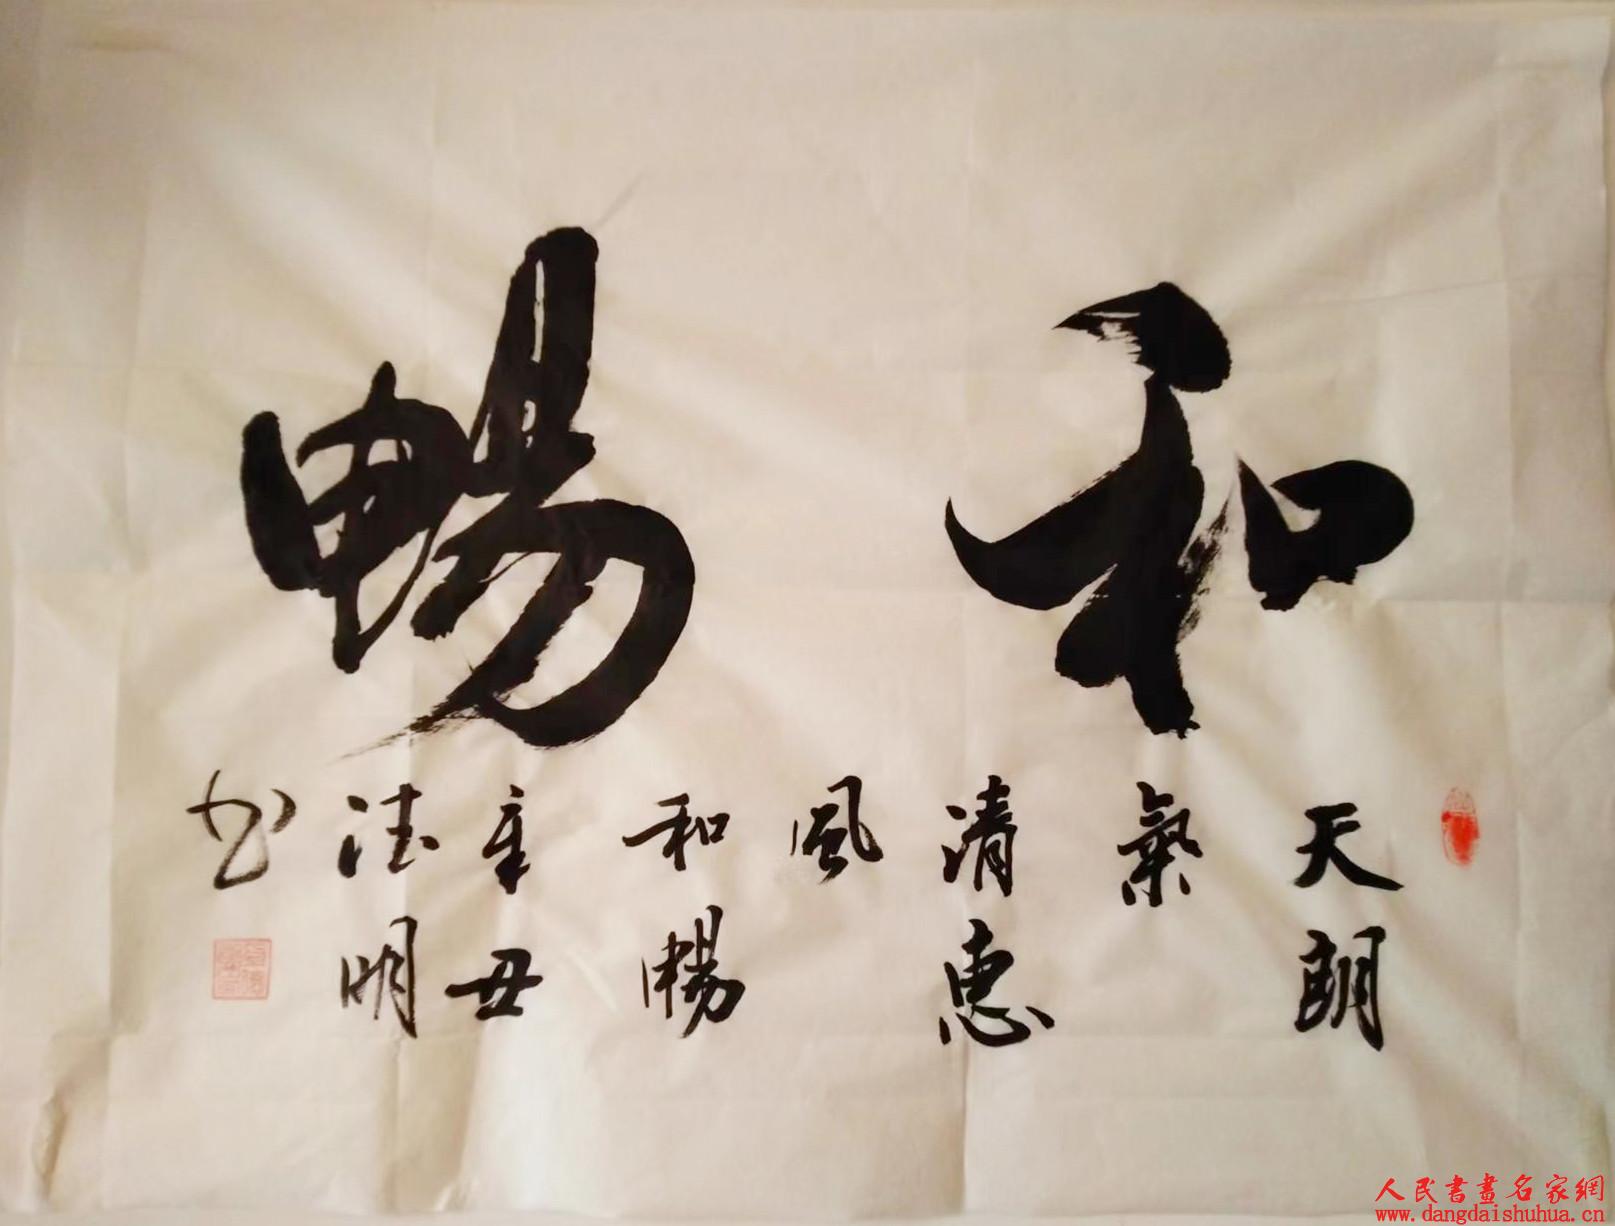 和暢
天朗
氣
清惠
風
和暢
辛丑
德明
书
人民書畫名家網
www.dangdaishuhua.cn